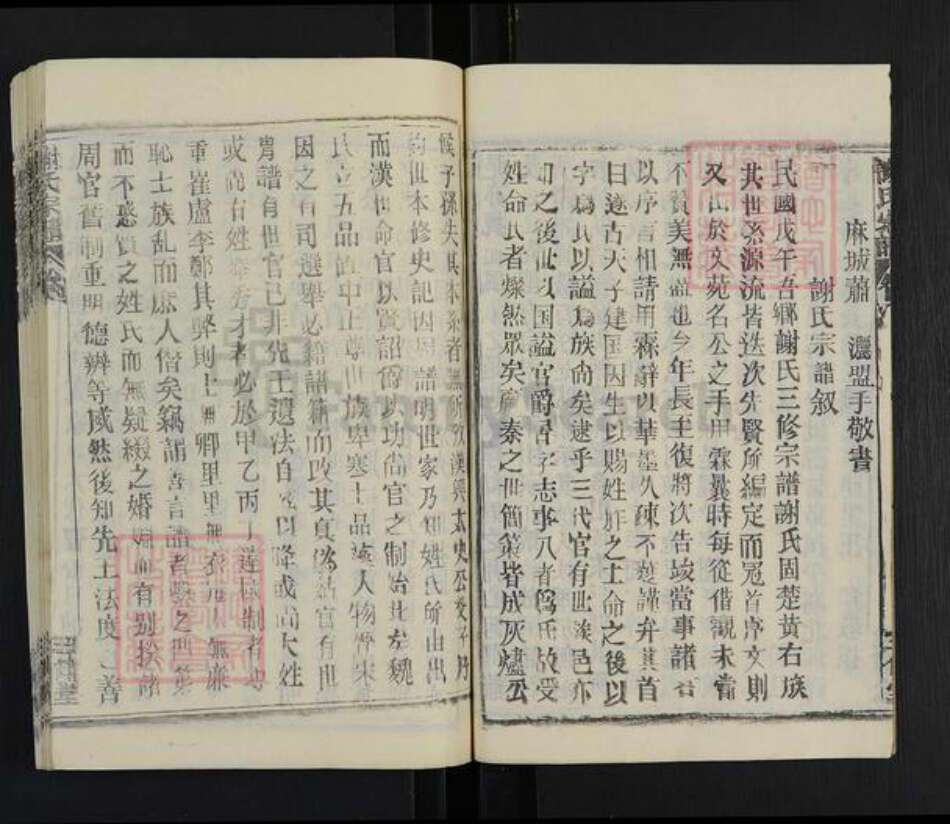 麻城蕭 灑盟手敬書
謝氏宗譜叙
民國戊午吾鄉謝氏三修宗譜謝氏固楚黃右族
其世系源流皆迭次先賢所編定而冠首序文則
又出於文苑名公之手用霖曩時每從借觀未嘗
不贊美無 也今年長主復將次告竣當事諸君
以序言相請用霖辭以華墨久疎不獲謹弁其首
曰邃古天子建国因生以賜姓胙之土命之後以
字為氏以謚為族尚矣逮乎三代官有世 邑亦
如之後世以国謚官爵 字志事八者為氏故受
姓命氏者燦然眾矣 秦之世簡策皆成灰燼公
候子孫失其本系者無所攷漢興太史公父子乃
約世本修史記因周譜明世家乃知姓氏所由出
而漢世命官以賢詔爵以功尚官之制始此差魏
氏立五品 中正尊世族卑寒士品 人物晉宋
因之有司選舉必籍譜籍而攷其真偽 官有世
胄譜有世官已非先王遺法自 以降或尚大姓
或尚右姓 秀才者必於甲乙丙丁 制者
重崔盧李鄭其弊則上無卿里里無衣 人無廉
恥士族亂而庶人僭矣竊謂善言譜者繫之 第
而不惑質之姓氏而無疑綴之婚姻而有别揆諸
周官舊制重明德辨等威然後知先王法度之善
謝氏宗譜